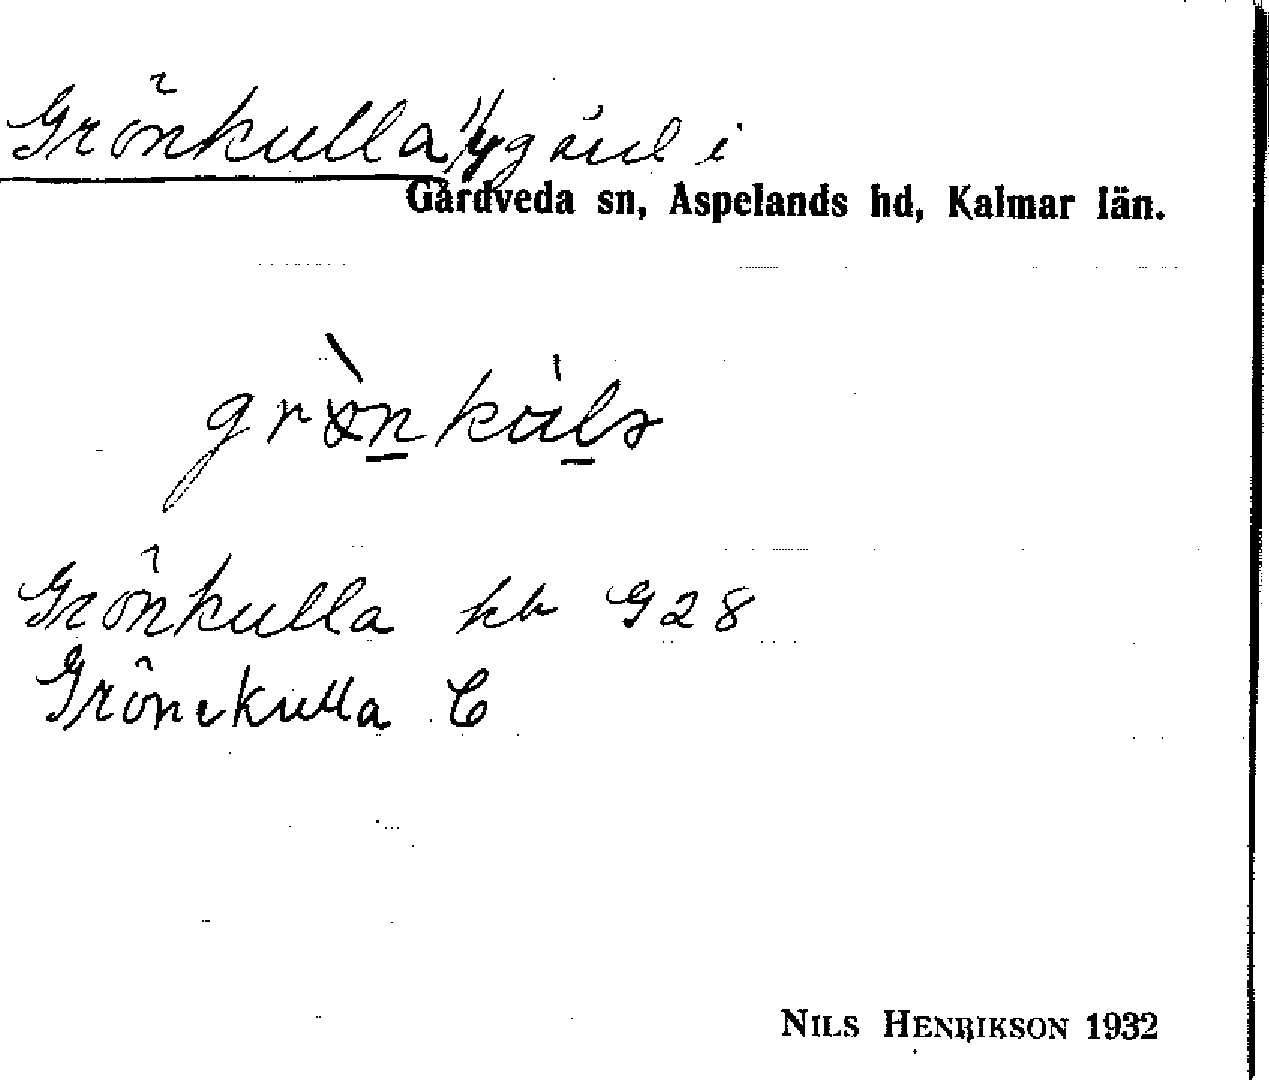 Grönkulla 1/4 gård i
Gårdveda sn, Aspelands hd, Kalmar län.
Grönkulla kb G28
Grönekulla C
NILS HENRIKSON 1932